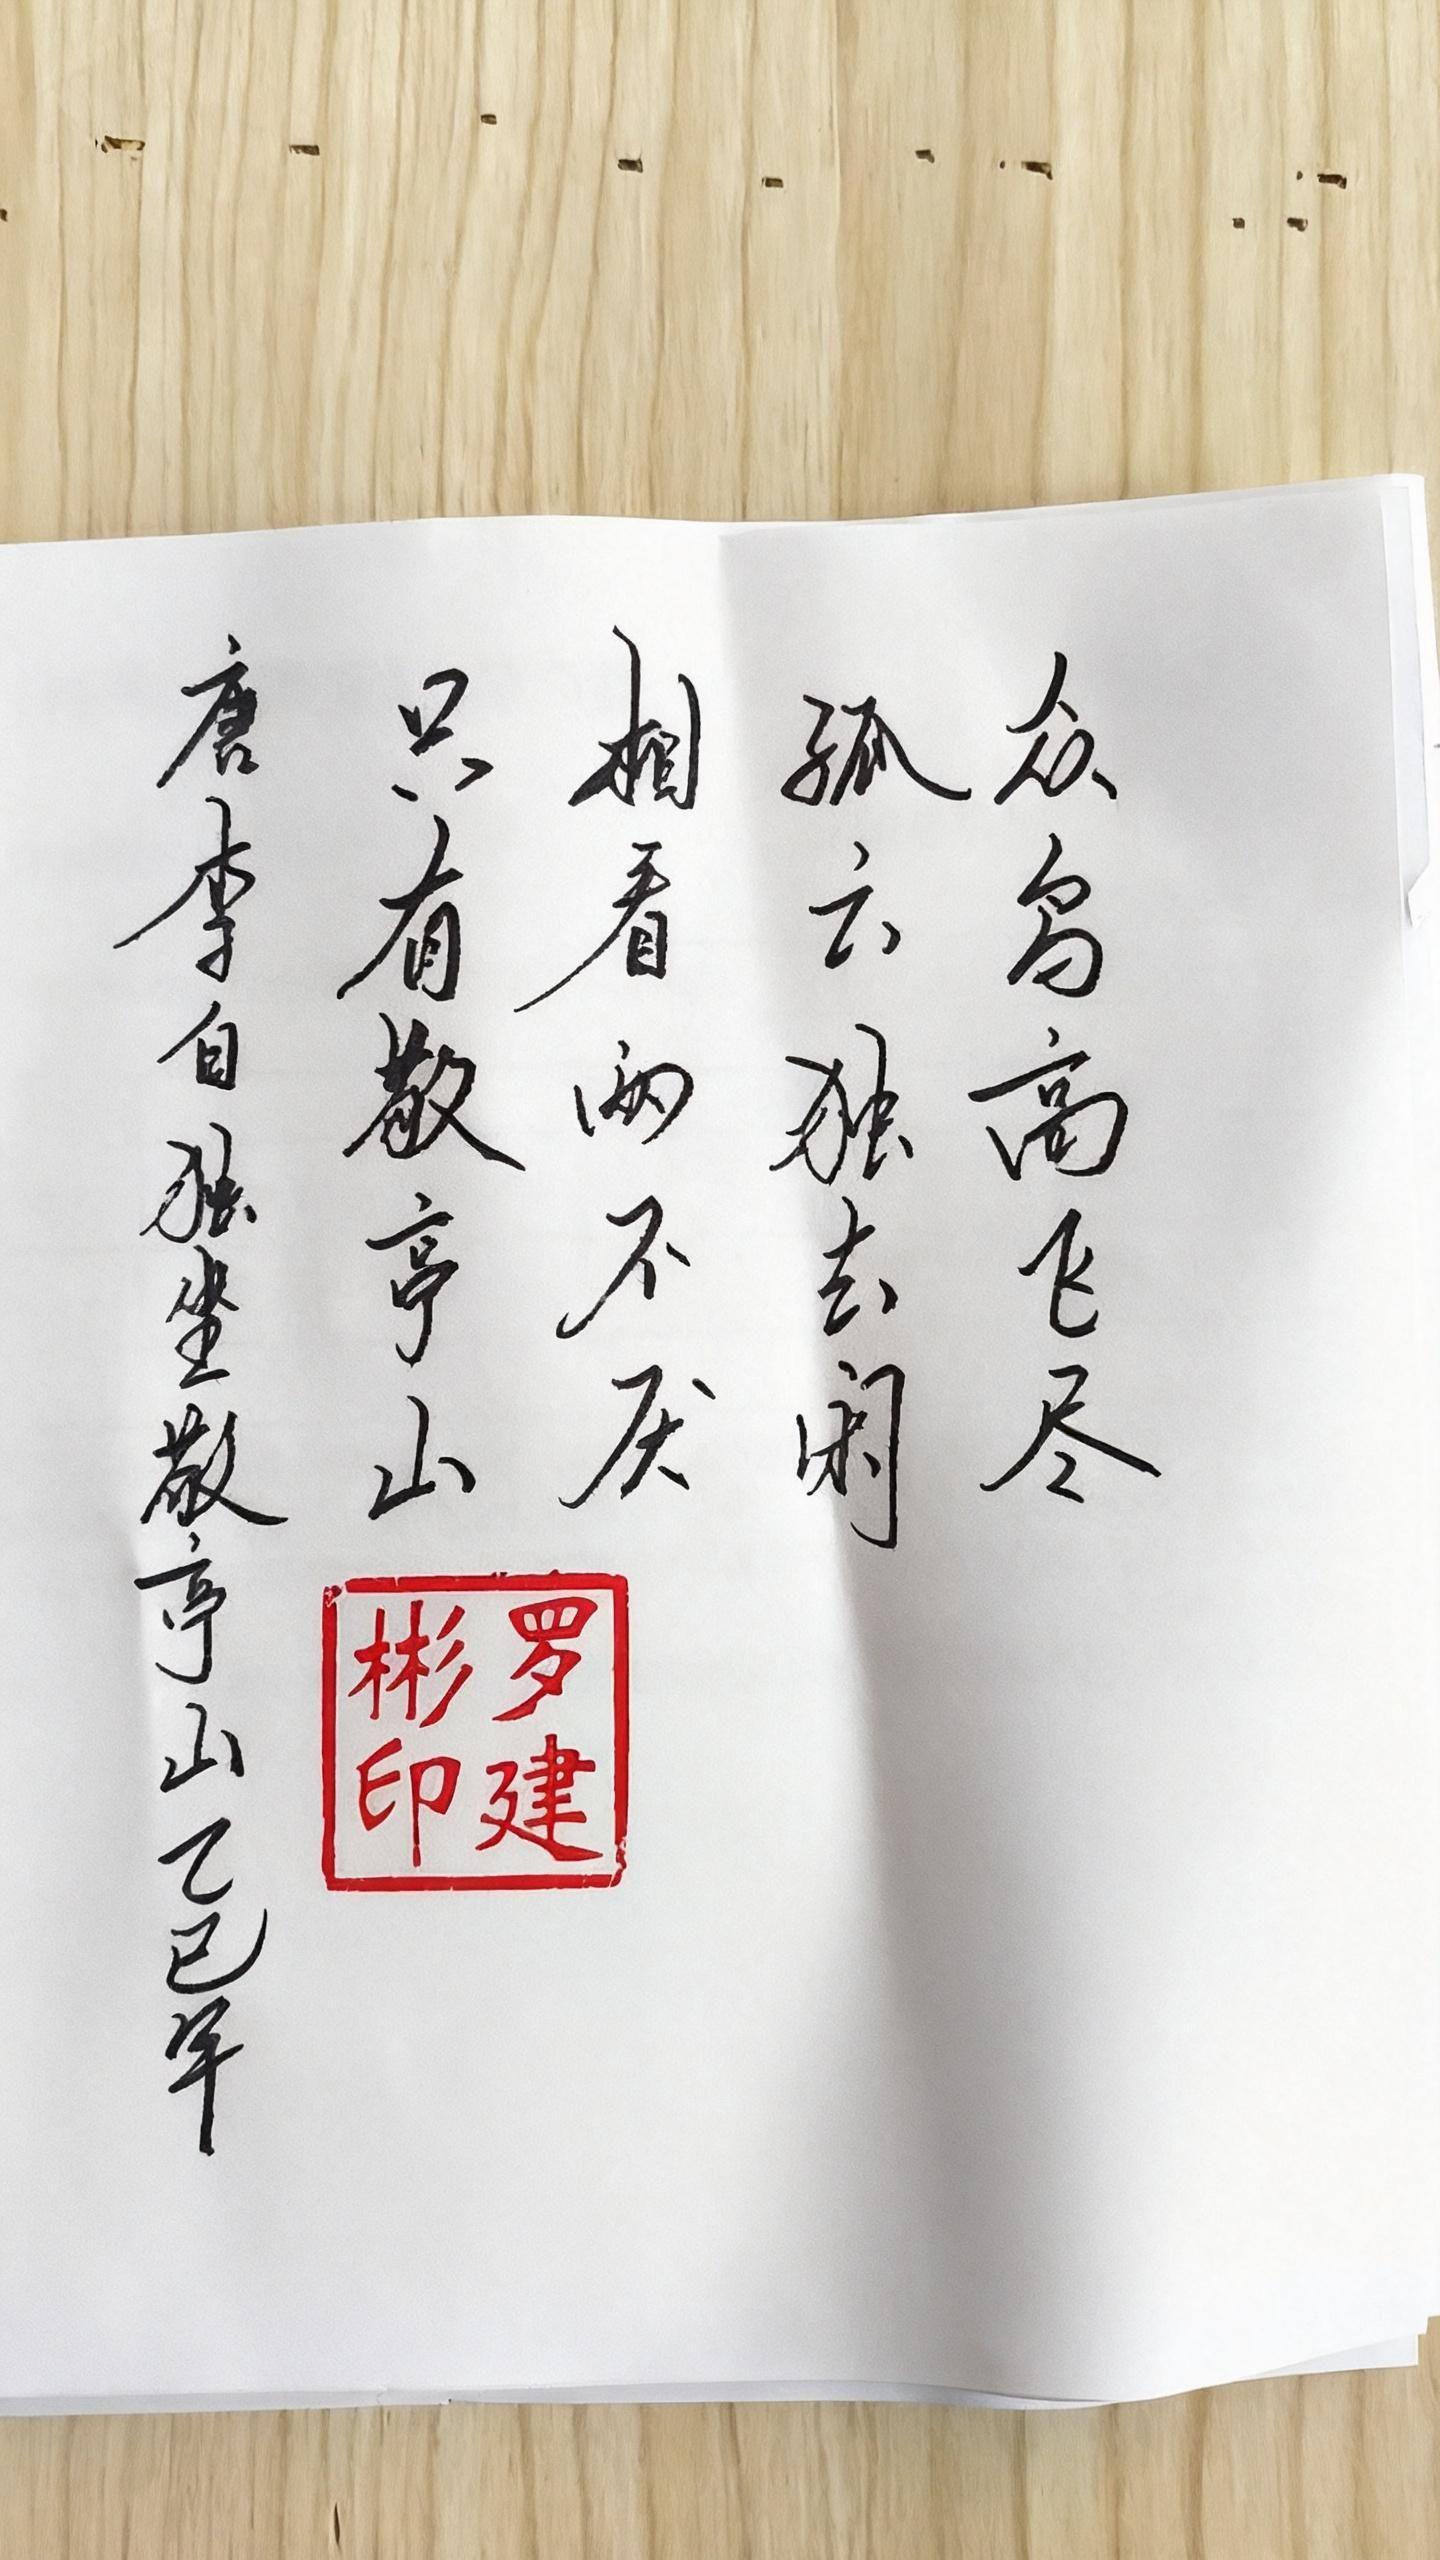 众鸟高飞尽
孤云独去闲
相看两不厌
只有敬亭山
唐李白独坐敬亭山乙巳年
罗建
彬印